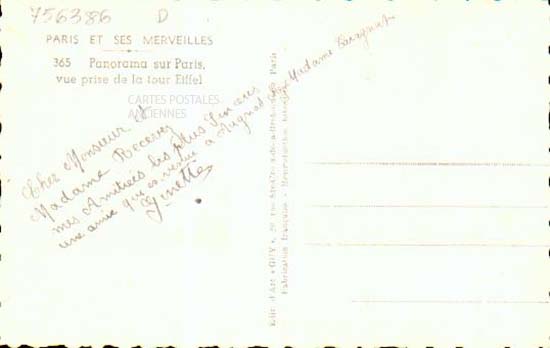 756386 D
PARIS ET SES MERVEILLES
365 Panorama sur Paris,
vue prise de la tour Eiffel
CARTES POSTALES
ANCIENNES
Cher Monsieur et
Madame Recevez
mes Amitiés les plus
une amie qui est venue a chez Madame
Ginette
Edit. d'Art « GUY », Paris
Fabrication française - Reproduction interdite